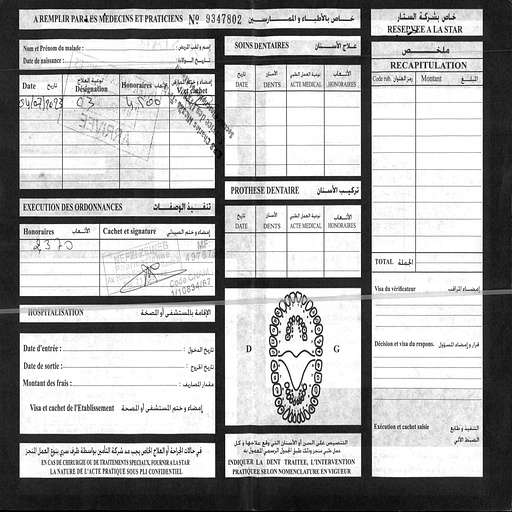 A REMPLIR PAR LES MEDECINS ET PRATICIENS Nº 9347802 خاص بالأطباء و الممارسين
Nom et Prénom du malade : إسم ولقب المريض :
Date de naissance : تاريخ الولادة :
Date تاريخ Désignation نوعية العلاج Honoraires الأتعاب
04/07/2023 03
ARRIVEE
EXECUTION DES ORDONNANCES تنفيذ الوصفات
Honoraires الأتعاب Cachet et signature إمضاء و ختم الصيدلي
2,370
Code CNAM
1/10834/67
HOSPITALISATION الإقامة بالمستشفى أو المصحة
Date d'entrée : تاريخ الدخول :
Date de sortie : تاريخ الخروج :
Montant des frais : مقدار المصاريف :
Visa et cachet de l'Etablissement إمضاء و ختم المستشفى أو المصحة
في حالات الجراحة أو العلاج الخاص يجب مد شركة التأمين بواسطة ظرف سري بنوع العمل المنجز
EN CAS DE CHIRURGIE OU DE TRAITEMENTS SPECIAUX, FOURNIR A LA STAR
LA NATURE DE L'ACTE PRATIQUE SOUS PLI CONFIDENTIEL
SOINS DENTAIRES علاج الأسنان
تاريخ الأسنان نوعية العمل الطبي الأتعاب
DATE DENTS ACTE MEDICAL HONORAIRES
PROTHESE DENTAIRE تركيب الأسنان
تاريخ الأسنان نوعية العمل الطبي الأتعاب
DATE DENTS ACTE MEDICAL HONORAIRES
D G
التنصيص على السن أو الأسنان التي وقع علاجها و كل
عمل طبي منجز وذلك طبق الجدول الرسمي المعمول به
INDIQUER LA DENT TRAITEE, L'INTERVENTION
PRATIQUEE SELON NOMENCLATURE EN VIGUEUR
خاص بشركة الستار
RESERVEE A LA STAR
ملخص
RECAPITULATION
Code rub. رمز العنوان Montant المبلغ
TOTAL الجملة
Visa du vérificateur إمضاء المراقب
Décision et visa du respons. قرار و إمضاء المسؤول
Exécution et cachet saisie التنفيذ و طابع
الضبط الآلي